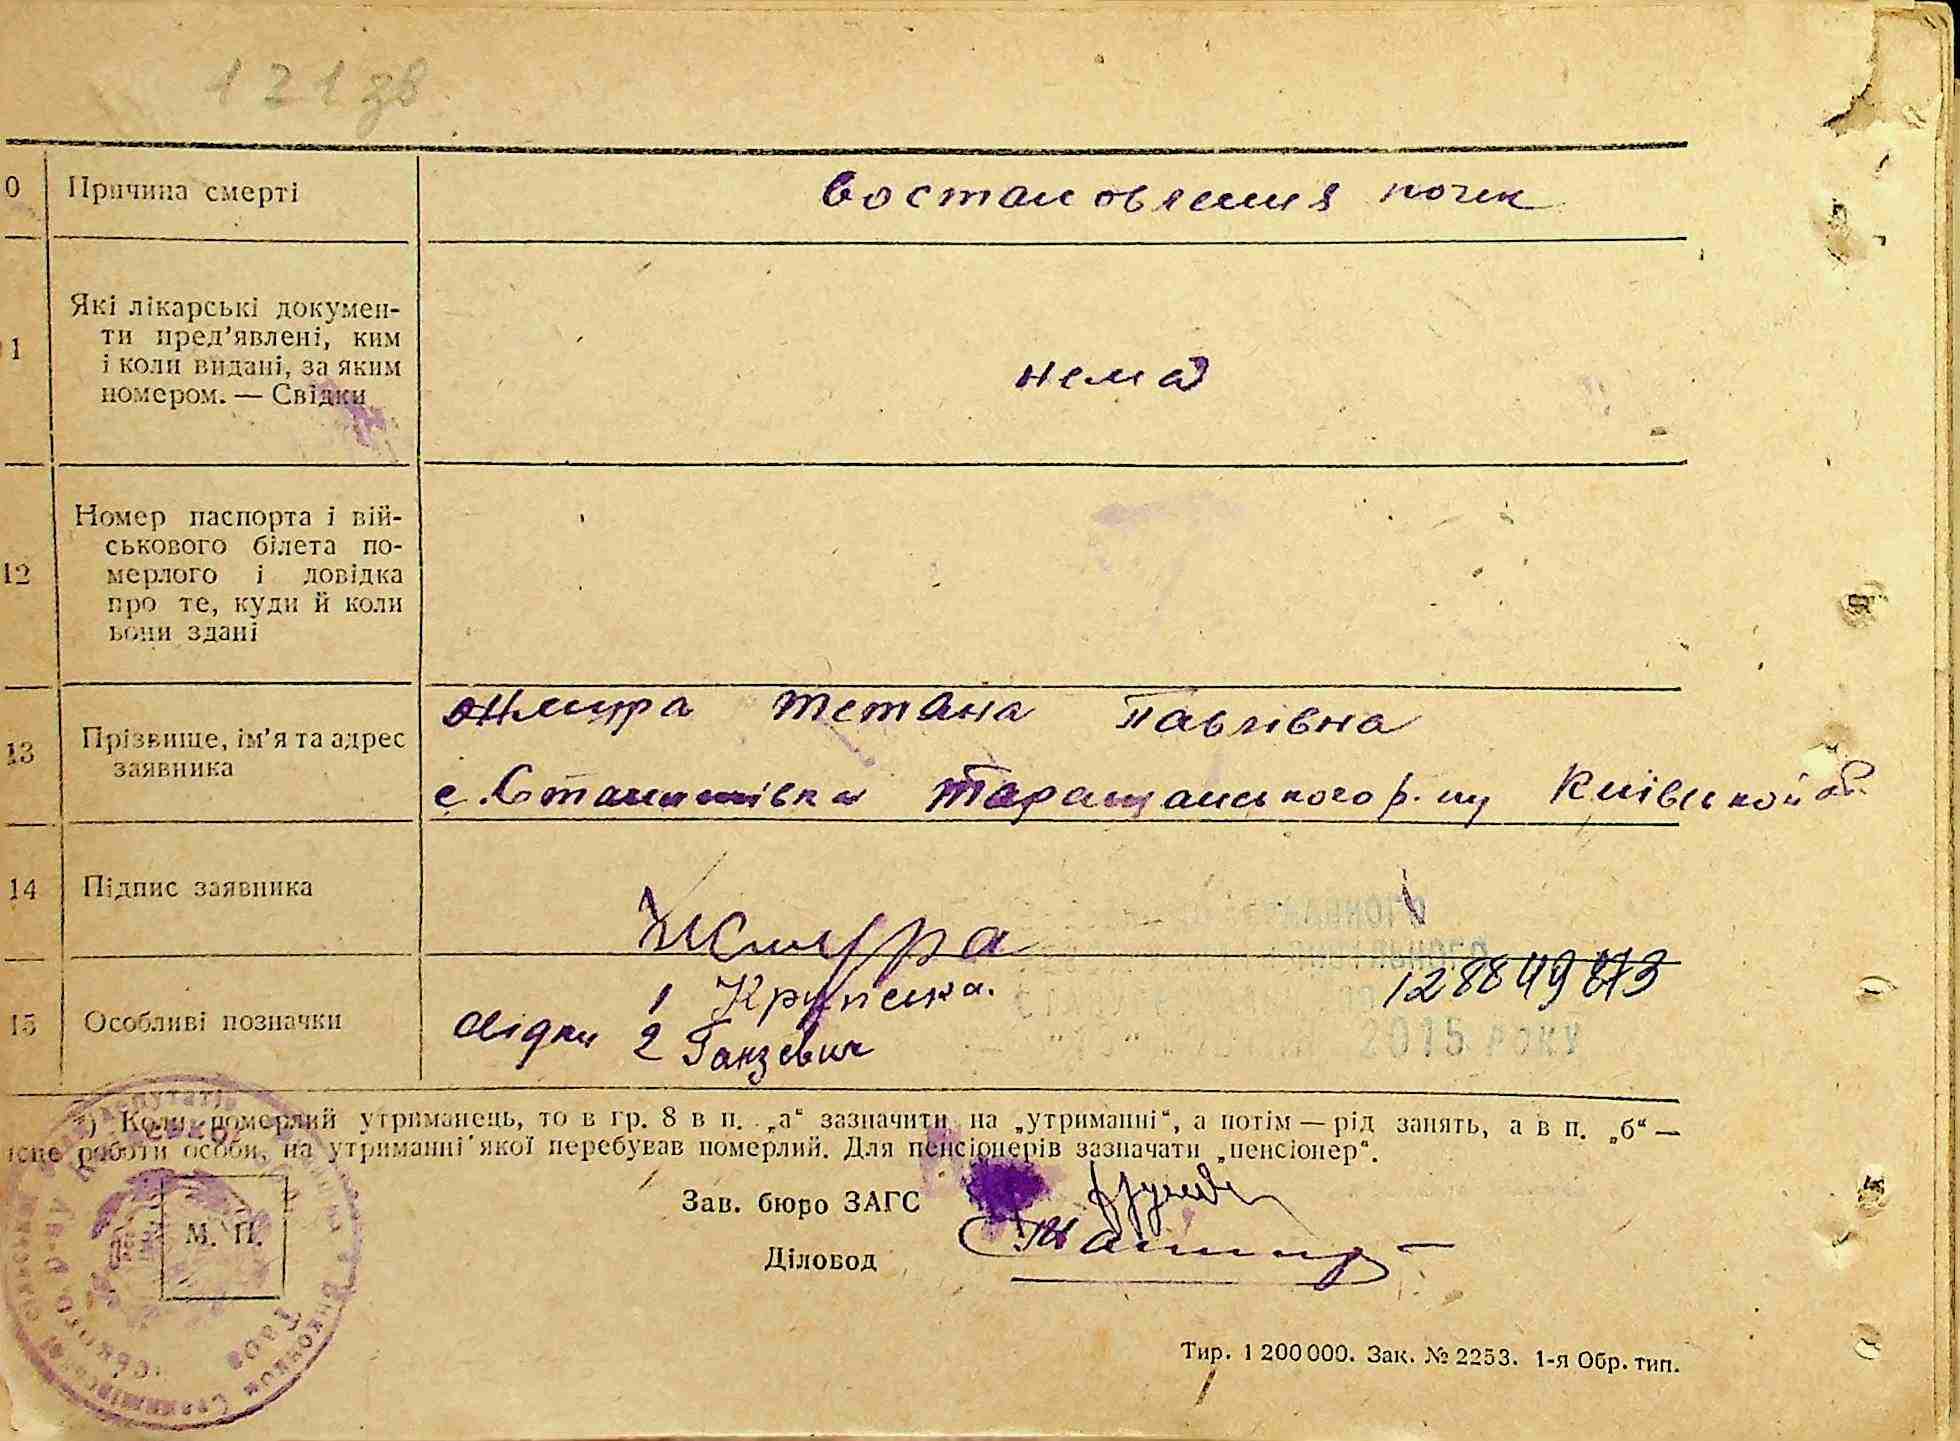 121 зв
0 Причина смерти востановления почек
1 Які лікарські докумен-
ти пред'явлені, ким
і коли видані, за яким
номером. — Свідки
нема
12 Номер паспорта і вій-
ськового білета по-
мерлого і довідка
про те, куди й коли
вони здані
Жмура Тетана Павлівна
13 Прізвище, ім'я та адрес
заявника
с. Станишівка Таращанського р-ну Київської об.
14 Підпис заявника Жмура
128849 673
15 Особливі позначки
1 Крупська.
свідки 2 Ганзевич
2015 року
*) Коли померлий утриманець, то в гр. 8 в п. „а“ зазначити на „утриманні“, а потім — рід занять, а в п. „б“ —
ісце роботи особи, на утриманні якої перебував померлий. Для пенсіонерів зазначати „пенсіонер“.
Зав. бюро ЗАГС
М. П.
Діловод
Тир. 1 200 000. Зак. № 2253. 1-я Обр. тип.